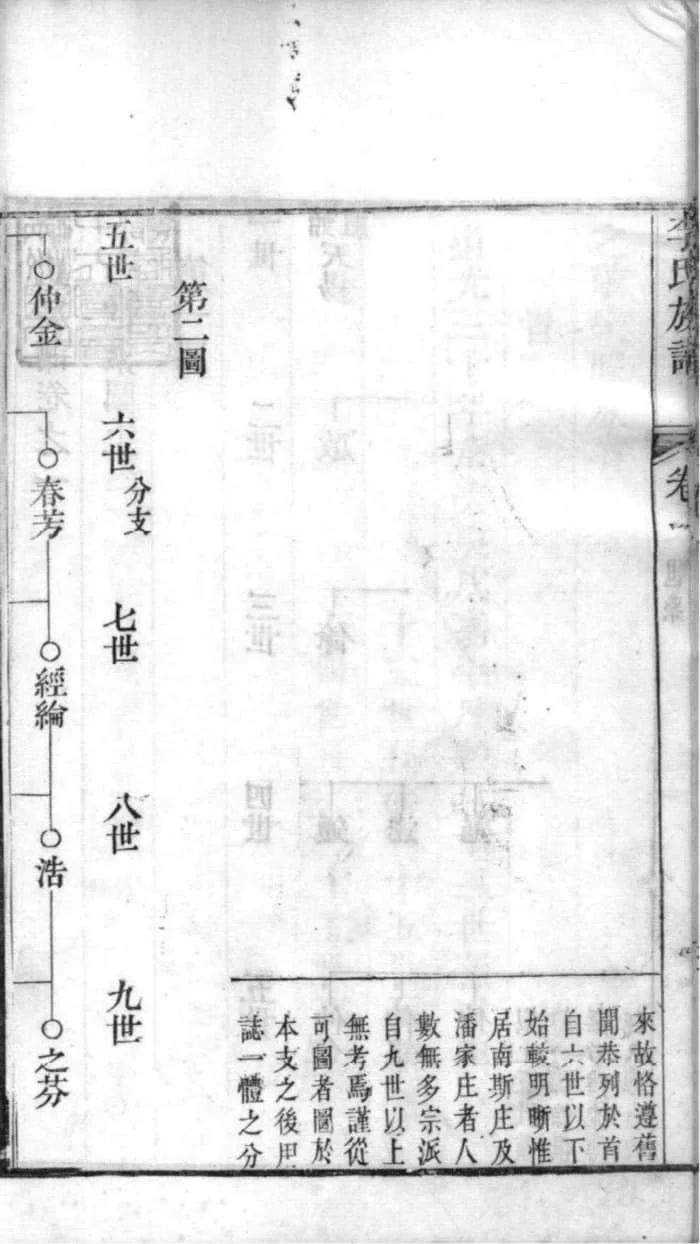 李氏族譜
卷一
來故恪遵舊
聞恭列於首
自六世以下
始較明晰惟
居南斯庄及
潘家庄者人
數無多宗派
自九世以上
無考焉謹從
可圖者圖於
本支之後用
誌一體之分
第二圖
五世
六世分支
七世
八世
九世
仲金
春芳
經綸
浩
之芬